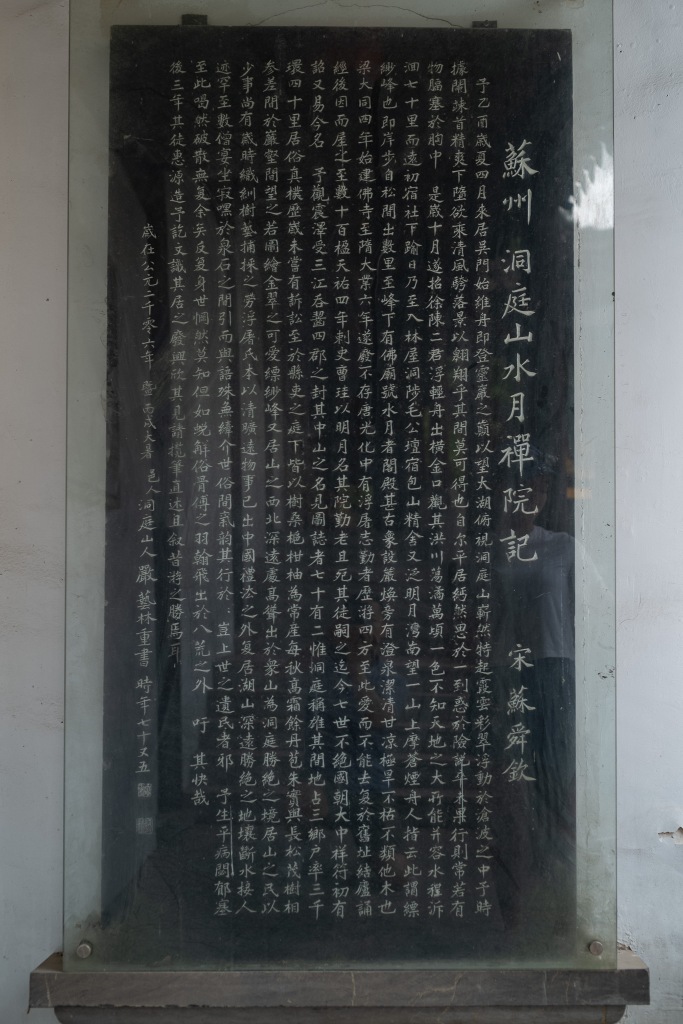 蘇州洞庭山水月禪院記 宋 蘇舜欽
予乙酉歲夏四月來居吳門始維舟即登靈巖之巔以望太湖俯視洞庭山嶄然特起霞雲彩翠浮動於滄波之中予時
據闌竦首精爽下墮欲乘清風跨落景以翱翔乎其間莫可得也自尔平居緬然思於一到惑於險說卒未果行則常若有
物膈塞於胸中 是歲十月遂招徐陳二君浮輕舟出橫金口觀其洪川蕩潏萬頃一色不知天地之大所能并容水程泝
洄七十里而遠初宿社下踰日乃至入林屋洞陟毛公壇宿包山精舍又泛明月灣南望一山上摩蒼煙舟人指云此謂縹
緲峰也即岸步自松間出數里至峰下有佛廟號水月者閣殿甚古象設嚴煥旁有澄泉潔清甘涼極旱不枯不類他水也
梁大同四年始建佛寺至隋大業六年遂廢不存唐光化中有浮屠志勤者歷游四方至此愛而不能去复於舊址結廬誦
經後因而屋之至數十百楹天祐四年刺史曹珪以明月名其院勤老且死其徒嗣之迄今七世不絕國朝大中祥符初有
詔又易今名 予觀震澤受三江吞嚙四郡之封其中山之名見圖誌者七十有二惟洞庭稱雄其間地占三鄉户率三千
環四十里居俗真樸歷歲未嘗有訴訟至於縣吏之庭下皆以樹桑梔柑柚為常產每秋高霜餘丹苞朱實與長松茂樹相
参差間於巖壑間望之若圖繪金翠之可愛縹緲峰又居山之西北深遠處高聳出於衆山為洞庭勝絶之境居山之民以
少事尚有歲時織紃樹藝捕採之勞浮屠氏本以清曠遠物事已出中國禮法之外复居湖山深遠勝絶之地壤斷水接人
迹罕至數僧宴坐寂嘿於泉石之間引而與語殊無纖介世俗間氣韵其行於﹅豈上世之遺民者邪 予生平病悶郁塞
至此喝然破散無复余矣反复身世惘然莫知但如蛻解俗骨傅之羽翰飛出於八荒之外 吁 其快哉
後三年其徒惠源造予乞文識其居之廢興欣其見請攬筆直述且叙昔游之勝焉耳
歲在公元二千零六年 暨 丙戌大暑 邑人 洞庭山人 嚴藝林重書 時年七十又五